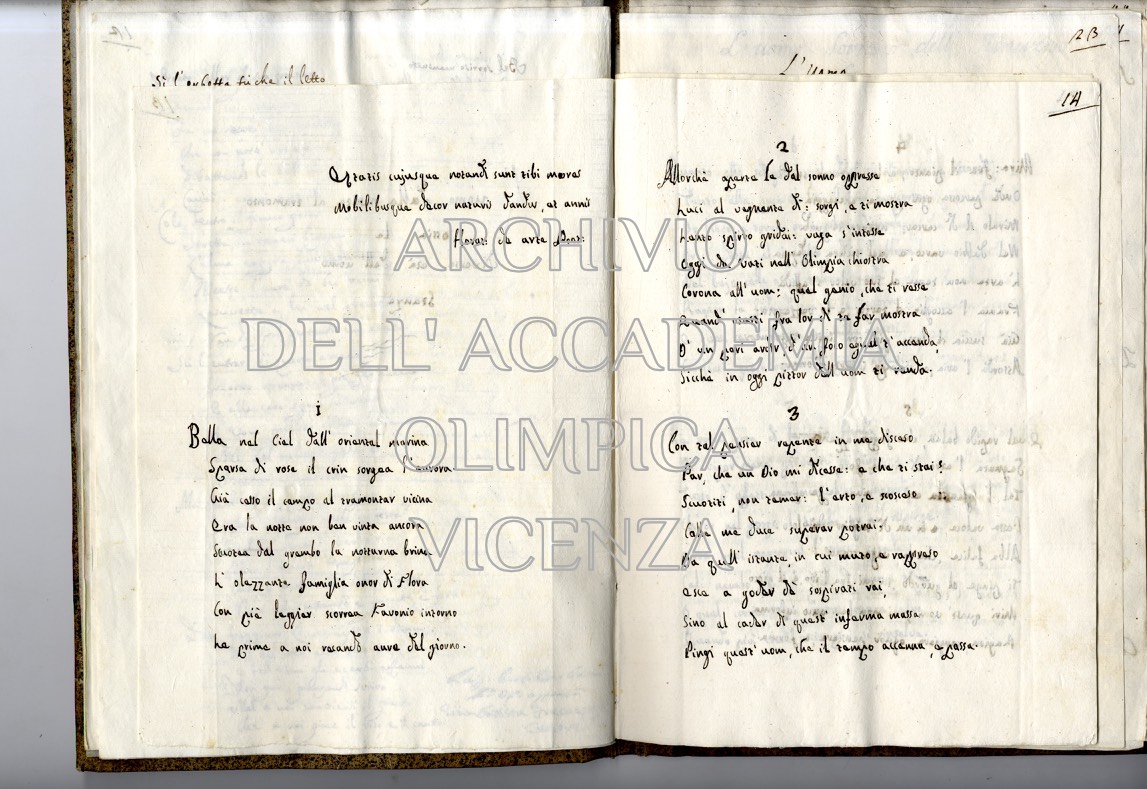 Si l'orchetta fu che il letto
Ætatis cujusque notandi sunt tibi mores
Mobilibusque decor naturis dandus, et annis
Horat: de arte Poet:
1
Bella nel Ciel dall' oriental marina
Sparsa di rose il crin sorgea l'aurora
Già casso il campo al tramontar vicina
Era la notte non ben vinta ancora
Scotea dal grembo la notturna brina
L' olezzante famiglia onor di Flora
Con piè leggier scorrea Favonio intorno
Le prime a noi recando aure del giorno.
23
L'Uomo
14
2
Allorchè queste fe dal sonno oppresse
Luci al vegnente dì: sorgi, e ti mostra
Lento spirto gridai: vega s'intesse
Oggi dei vati nell' Olimpia chiostra
Corona all' uom: qual genio, che ti resse
Quand' fra lor di te far mostra
D' un pari ardir, d'un foco egual t'accenda,
Sicchè in oggi pittor dell' uom ti renda.
3
Con tal pensier repente in me disceso
Par, che un Dio mi dicesse: e che ti stai?
Scuotiti, non temer: l'erto, e scosceso
Calle me duce superar potrai;
Da quell' istante, in cui muto, e rappreso
Esce a goder de sospirati rai,
Sino al cader di quest' inferma massa
Pingi quest' uom, che il tempo accenna, e passa.
ARCHIVIO
DELL' ACCADEMIA
OLIMPICA
VICENZA